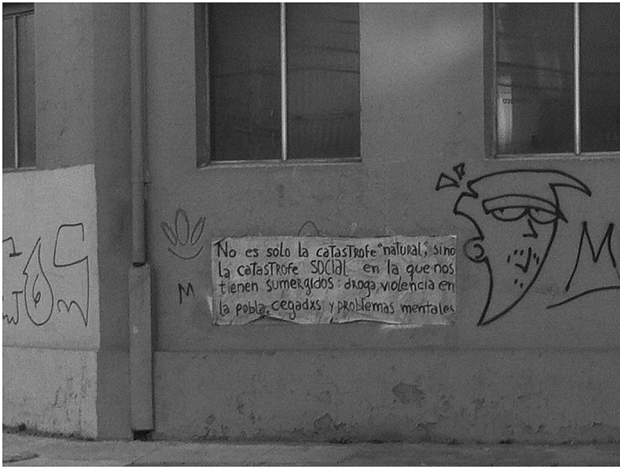 No es solo la catastrofe "natural", sino
la catastrofe SOCIAL en la que nos
tienen sumergidos: droga, violencia en
la pobla, cegadxs y problemas mentales
M
M